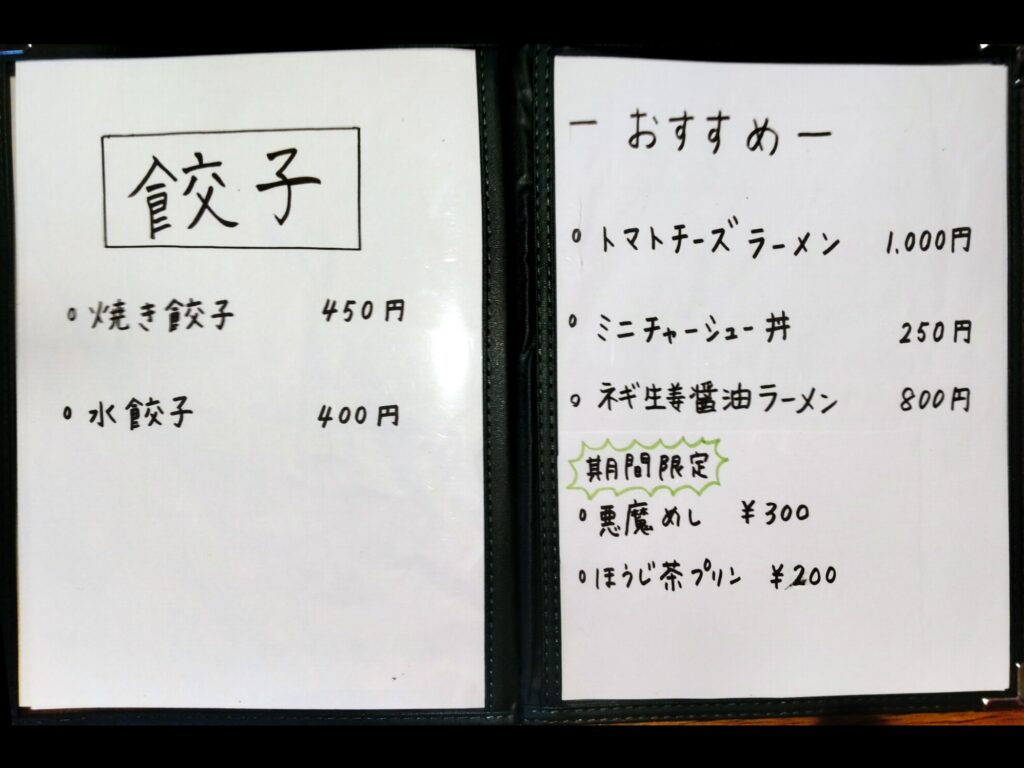 餃子
○焼き餃子 450円
○水餃子 400円
ーおすすめー
○トマトチーズラーメン 1.000円
○ミニチャーシュー丼 250円
○ネギ生姜醤油ラーメン 800円
期間限定
○悪魔めし ¥300
○ほうじ茶プリン ¥200